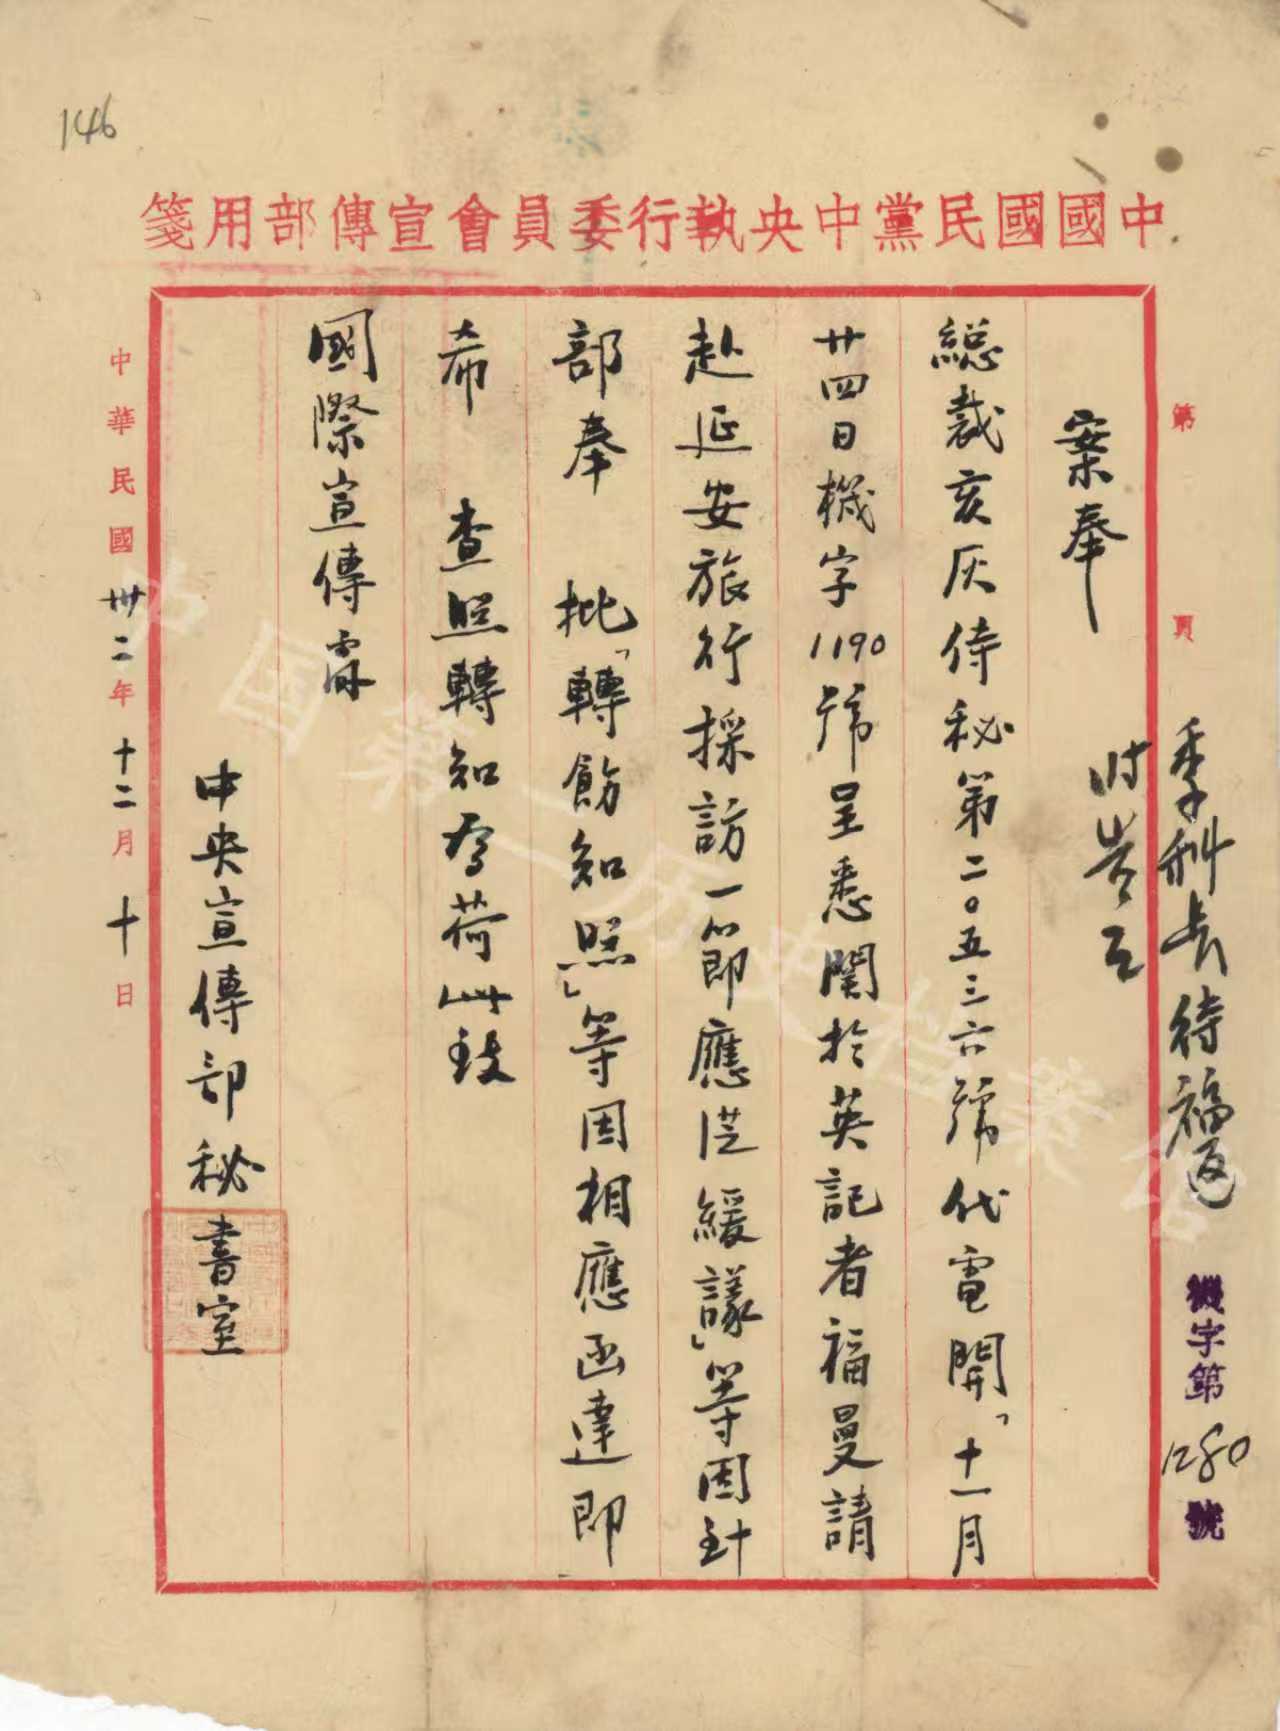 146
中國國民黨中央執行委員會宣傳部用箋
第 頁
季科長待福返
時
機字第1280號
案奉
總裁亥灰侍秘第二〇五三六號代電開「十一月
廿四日機字1190號呈悉關於英記者福曼請
赴延安旅行採訪一節應從緩議」等因到
部奉 批「轉飭知照」等因相應函達即
希 查照轉知為荷此致
國際宣傳處
中央宣傳部秘書室
中華民國卅二年十二月十日
中国第二历史档案馆